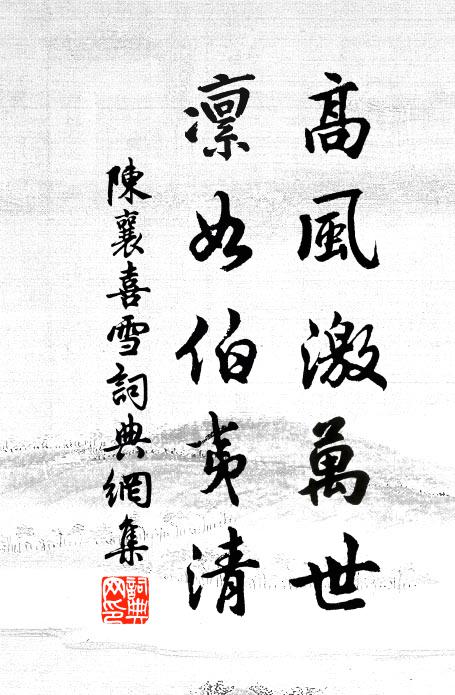 高風激萬世
凛如伯夷清
陳襄喜雪詞典網集
詞典網印